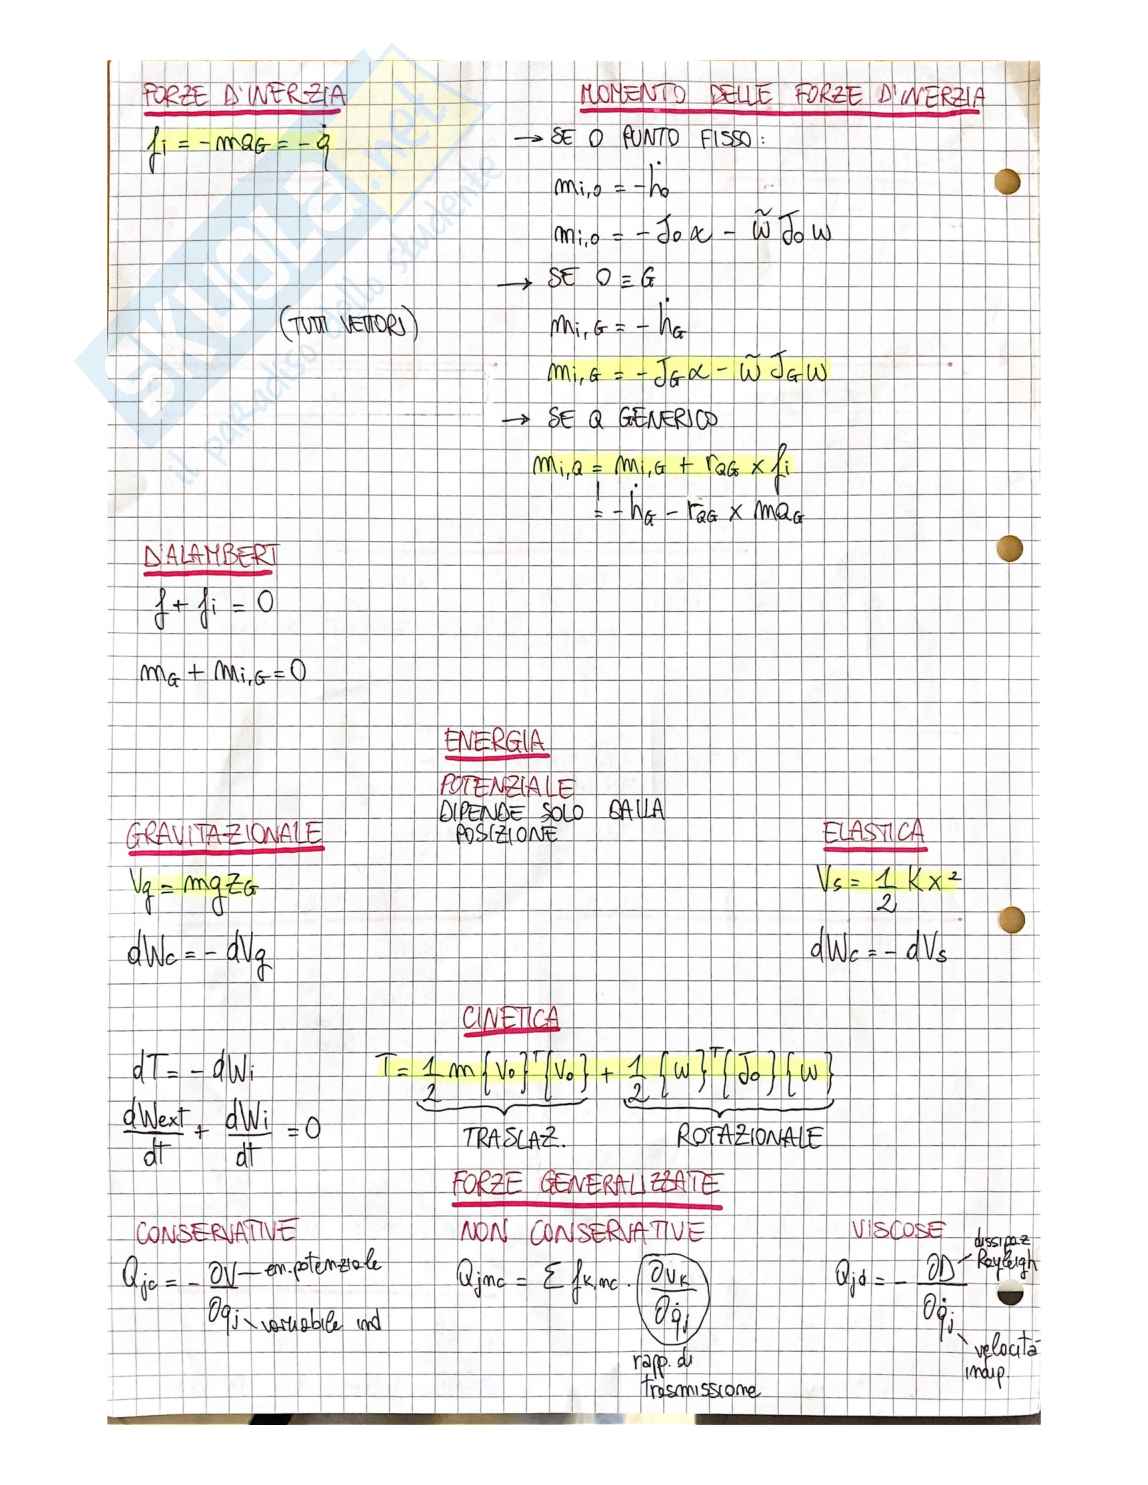 FORZE D'INERZIA
fi = -maG = -q̇
(TUTTI VETTORI)
MOMENTO DELLE FORZE D'INERZIA
→ SE O PUNTO FISSO:
mi,o = -ḣo
mi,o = -Joα - ω̃ Joω
→ SE O ≡ G
mi,G = -ḣG
mi,G = -JGα - ω̃ JGω
→ SE Q GENERICO
mi,Q = mi,G + rQG × fi
= -ḣG - rQG × maG
D'ALAMBERT
f + fi = 0
mG + mi,G = 0
ENERGIA
POTENZIALE
DIPENDE SOLO DALLA
POSIZIONE
GRAVITAZIONALE
Vg = mgzG
dWc = -dVg
ELASTICA
Vs = 1/2 Kx²
dWc = -dVs
CINETICA
dT = -dWi
dWext/dt + dWi/dt = 0
T = 1/2 m{vo}ᵀ{vo} + 1/2 {ω}ᵀ[Jo]{ω}
TRASLAZ. ROTAZIONALE
FORZE GENERALIZZATE
CONSERVATIVE
Qjc = -∂V/∂qj
en. potenziale
variabile ind
NON CONSERVATIVE
Qjnc = Σ fk,nc · ∂vk/∂q̇j
rapp. di
trasmissione
VISCOSE
Qjd = -∂D/∂q̇j
dissipaz
Rayleigh
velocità
indip.
SKUOLA.net
il paradiso dello studente